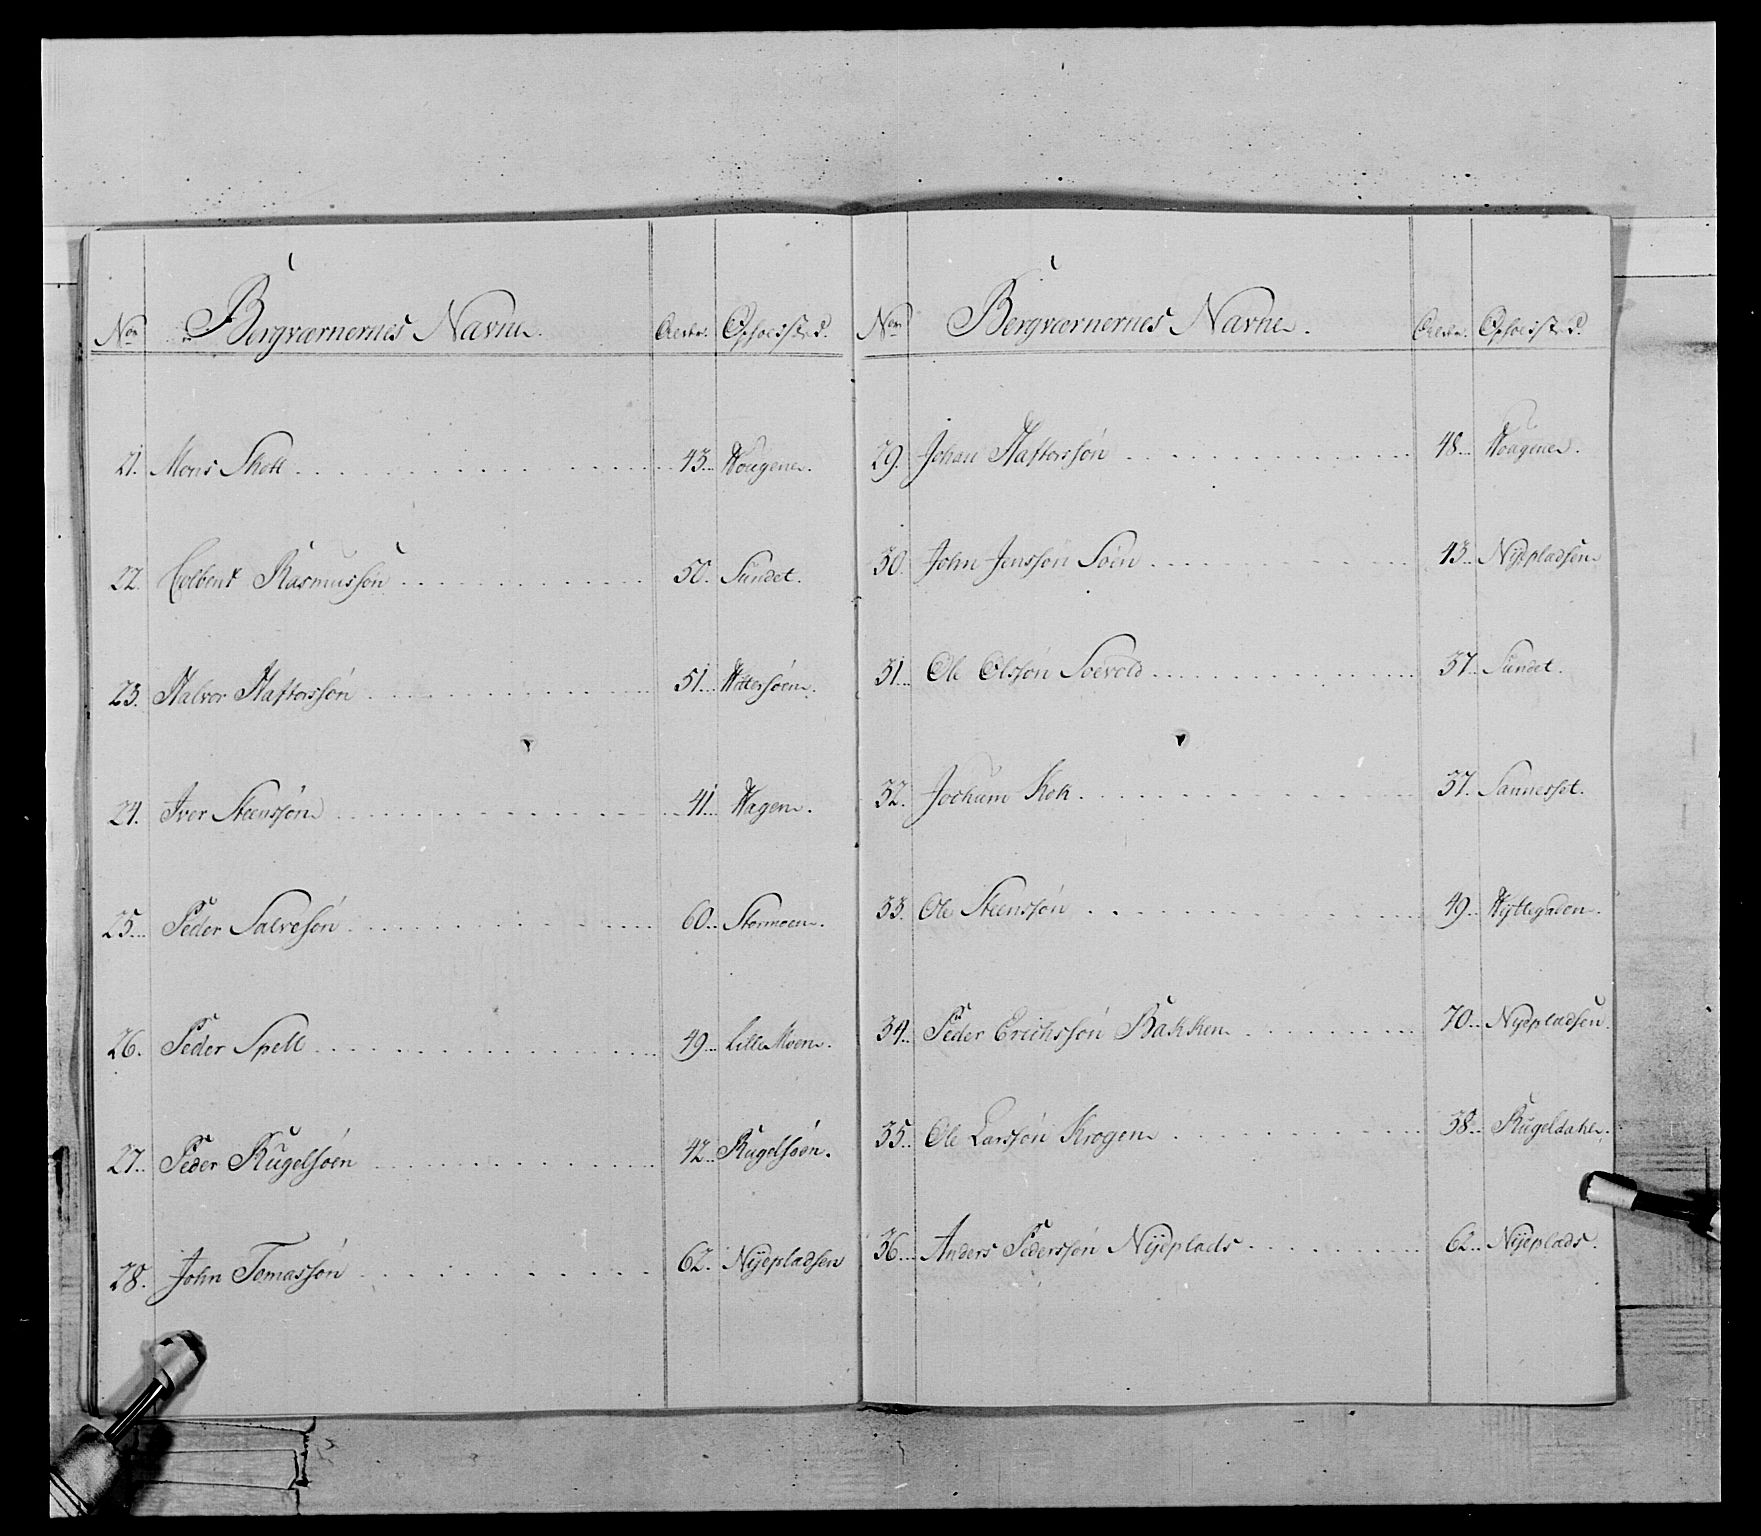 No Bergværnernes Navne. Alder. Opholdsted.
21. Mons Skott 43. Hougene.
22. Colbent Rasmussøn 50. Sundet.
23. Halvor Haftorssøn 51. Hittersøen.
24. Iver Steenssøn 41. Hagen.
25. Peder Salvesøn 60. Stormoen.
26. Peder Spell 49. Lille Moen.
27. Peder Rugelsøen 42. Rugelsøen.
28. John Tomassøn 62. Nÿepladsen
No Bergværnernes Navne. Alder. Opholdsted.
29. Johan Haftorssøn 48. Hougene.
30. John Jenssøn Søen 43. Nÿepladsen
31. Ole Olssøn Soevold 37. Sundet.
32. Jochum Kok 37. Sannesset.
33. Ole Steenssøn 49. Hÿttegaden.
34. Peder Erichssøn Bakken 70. Nÿepladsen.
35. Ole Larssøn Krogen 38. Rugeldahl.
36. Anders Pederssøn Nÿeplads 62. Nÿeplads.